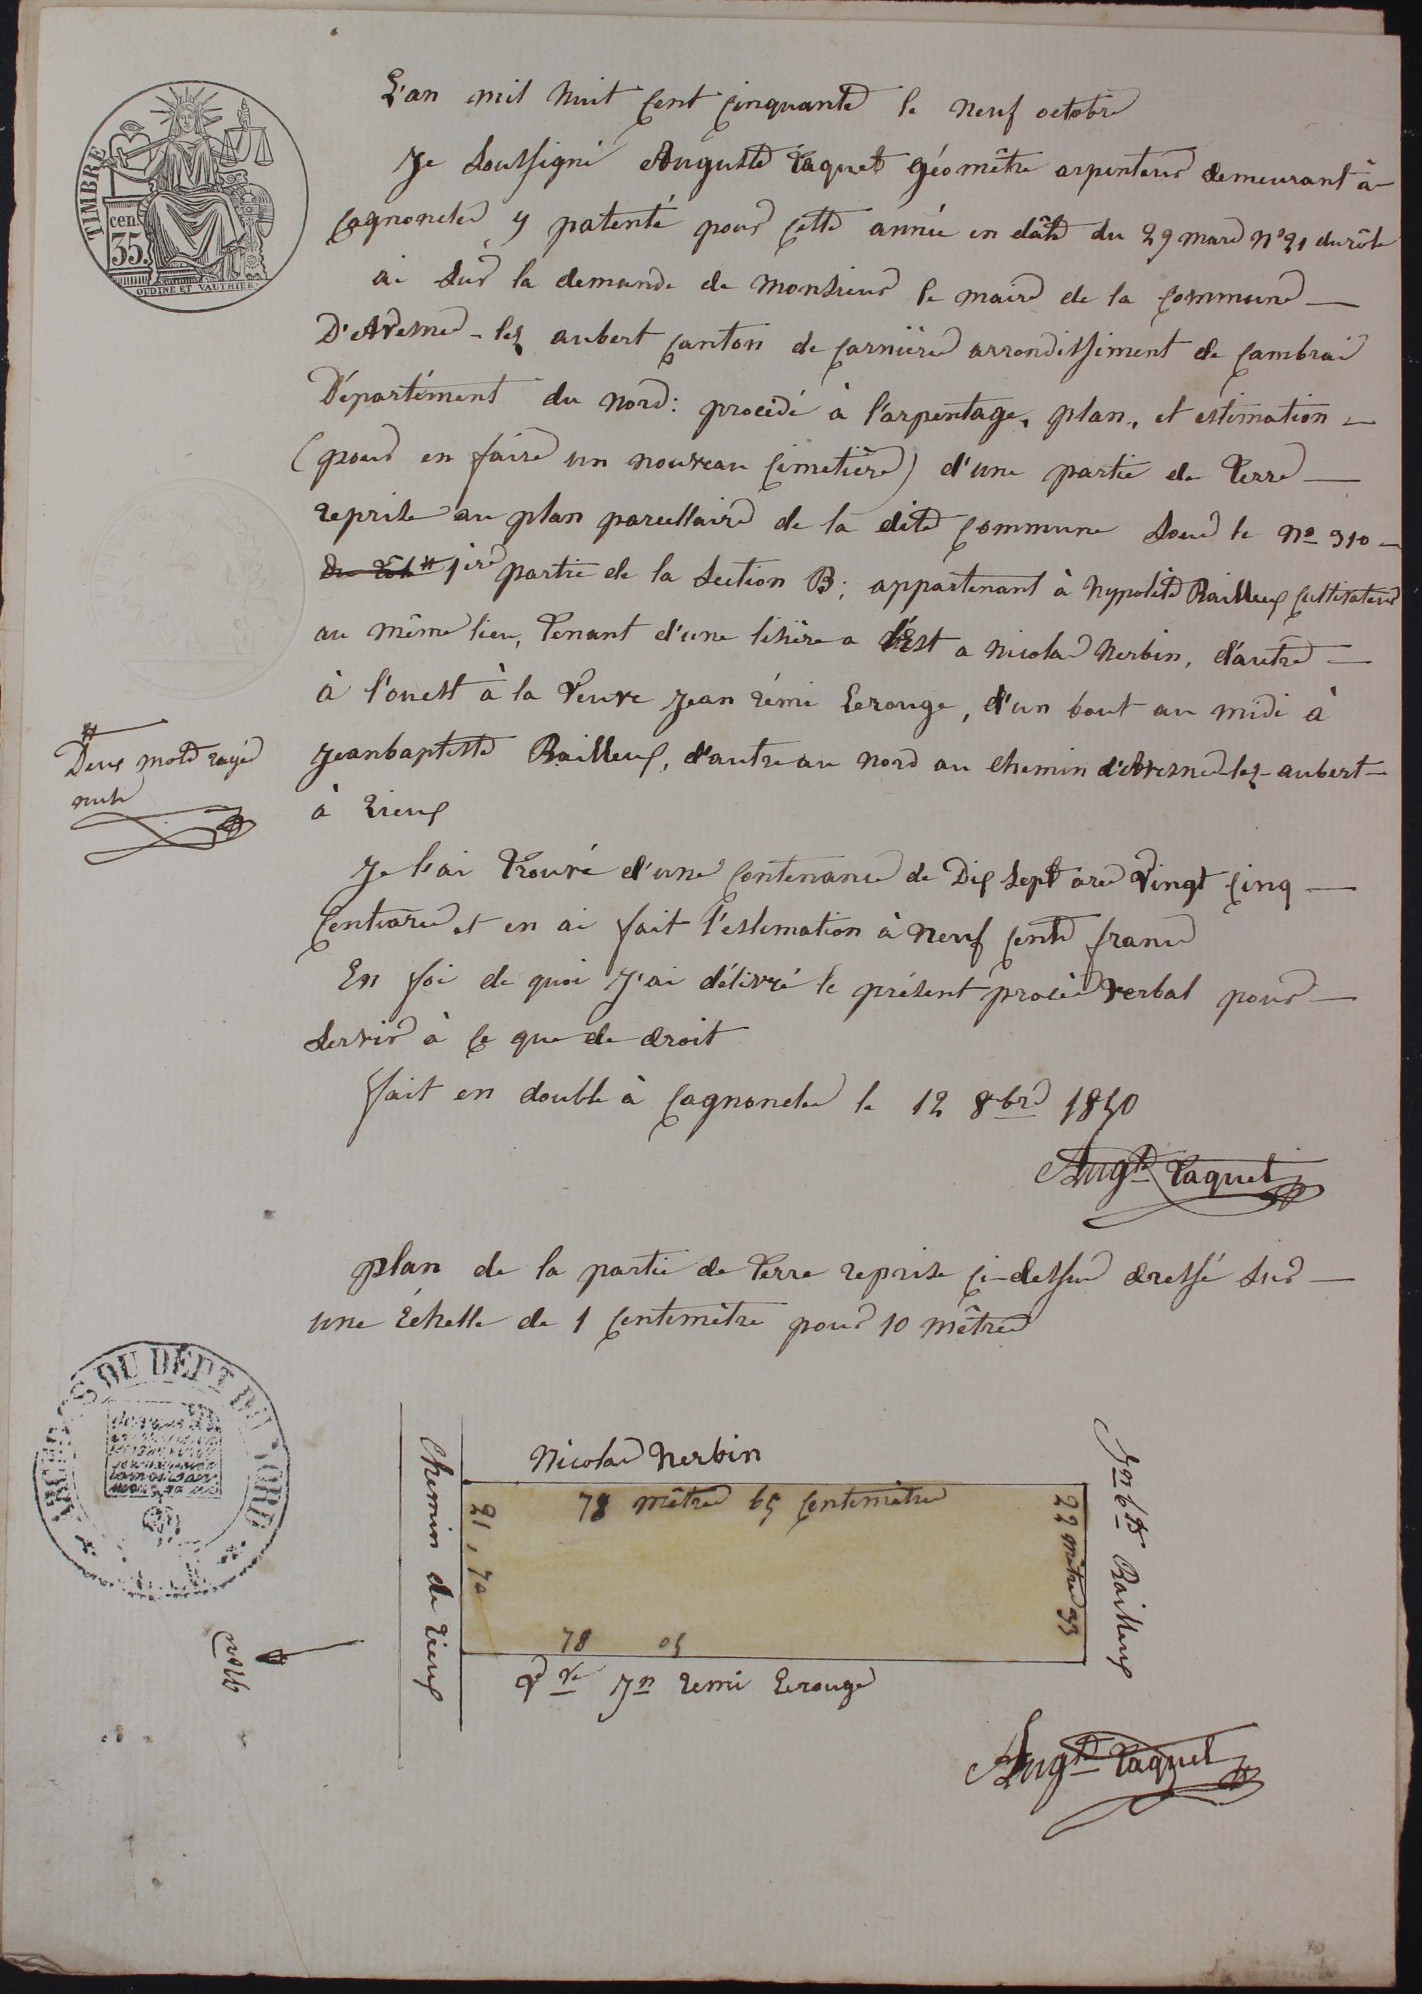 TIMBRE
cen.
35.
OUDINÉ ET VAUTHIER.
L'an mil huit cent cinquante le neuf octobre
Je soussigné Auguste Taquet géomêtre arpenteur demeurant à
Cagnoncles y patenté pour cette année en dâte du 29 mars N° 21 du rôle
ai sur la demande de Monsieur le maire de la commune —
D'Avesnes-lez aubert canton de Carnières arrondissement de Cambrai
Département du Nord: procédé à l'arpentage, plan, et estimation —
(pour en faire un nouveau cimetière) d'une partie de terre —
reprise au plan parcellaire de la dite commune sous le N° 310 —
du rôle # 1ère partie de la section B; appartenant à hypolite Bailleux cultivateur
au même lieu, tenant d'une lisière a l'Est a Nicolas herbin, d'autre —
à l'ouest à la veuve Jean rémi Lerouge, d'un bout au midi à
Jeanbaptiste Bailleux, d'autre au nord au chemin d'Avesnes-lez-aubert —
à rieux
#
Deux mots rayés
nuls
Je l'ai trouvé d'une contenance de Dix sept ares vingt cinq —
centiares et en ai fait l'estimation à neuf cents francs
En foi de quoi J'ai délivré le présent procès verbal pour —
servir à ce que de droit
fait en double à Cagnoncles le 12 8bre 1850
Augte Taquet
plan de la partie de terre reprise ci-dessus dressé sur —
une échelle de 1 centimêtre pour 10 mêtres
ARCHIVES DU DÉPT DU NORD
Nicolas herbin
78 mêtres 65 centimêtres
21, 70
22 mêtres 93
78 05
Vve Jn remi Lerouge
Chemin de rieux
Jn bte Bailleux
nord
Augte Taquet